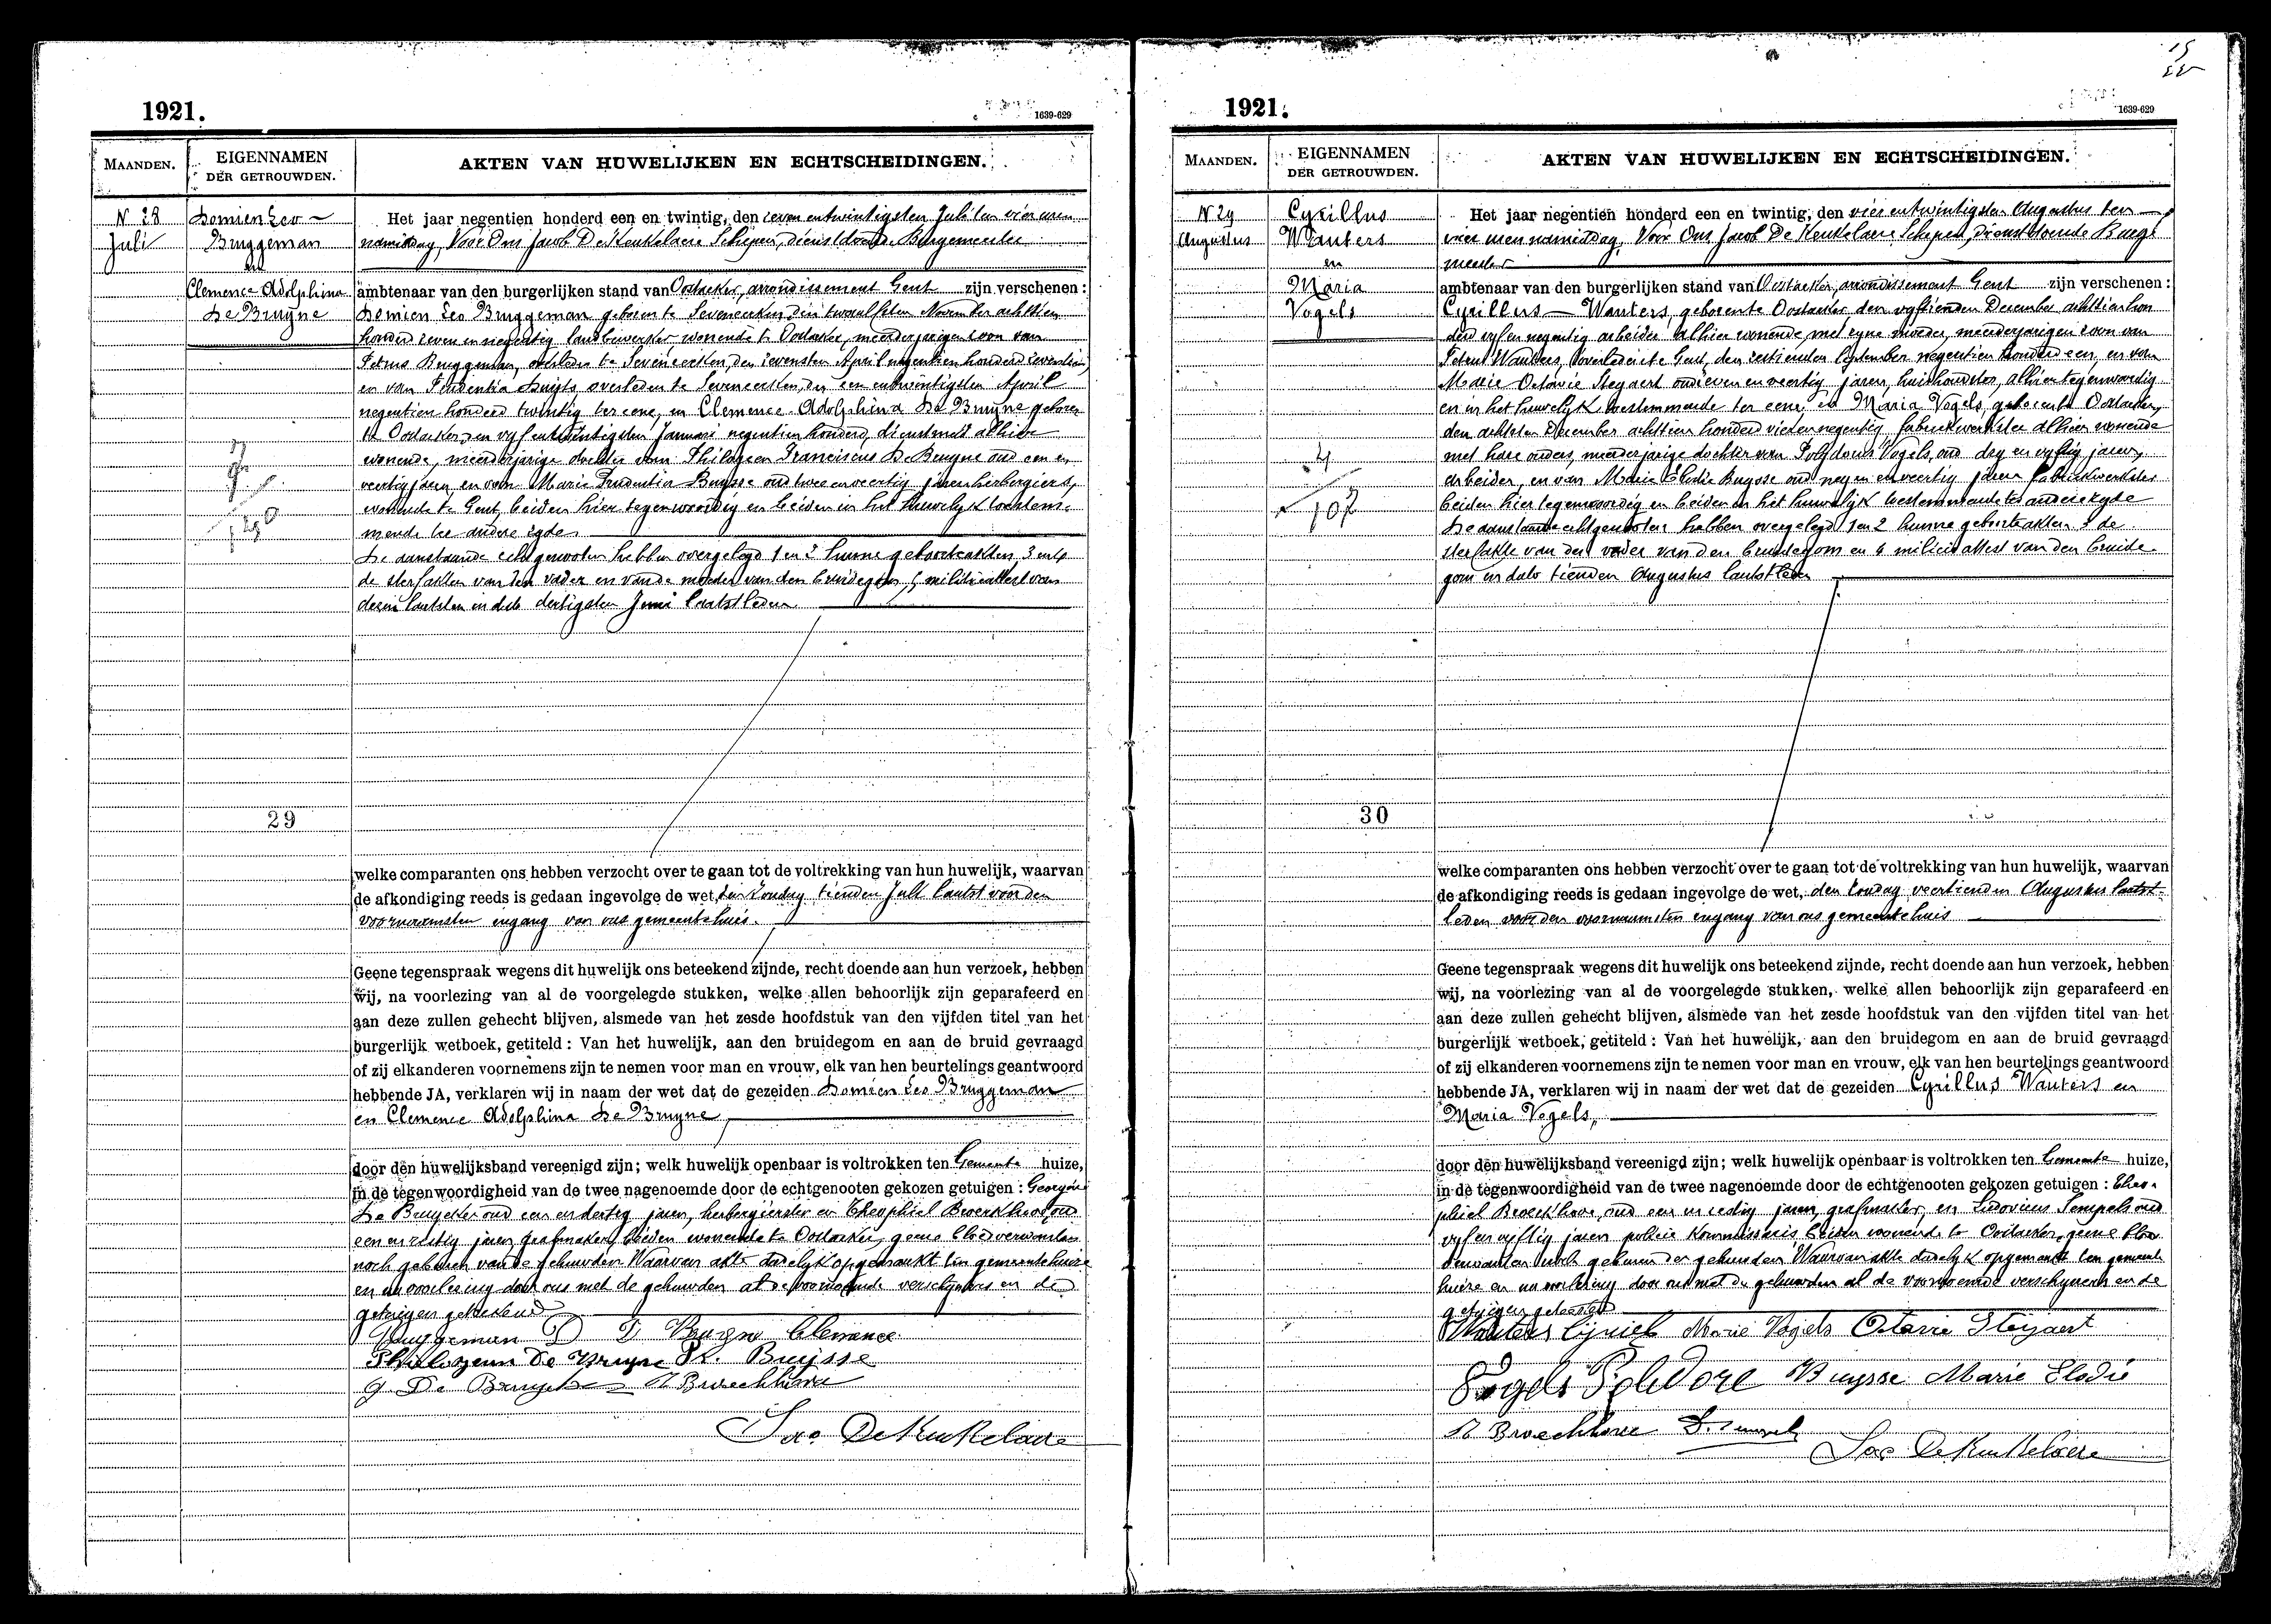 1921.
1639-629
MAANDEN.
EIGENNAMEN
DER GETROUWDEN.
AKTEN VAN HUWELIJKEN EN ECHTSCHEIDINGEN.
N 28
Juli
Domien Leo
Bruggeman
en
Clemence Adolphina
De Bruyne
Het jaar negentien honderd een en twintig, den zeven entwintigsten Juli ten vier uren
namiddag, Voor Ons Jacob De Keukelaere Schepen, dienstdoende Burgemeester
ambtenaar van den burgerlijken stand van Oostacker, arrondissement Gent zijn verschenen :
Domien Leo Bruggeman geboren te Seveneecken den twaalfsten November achttien
honderd zeven en negentig landbewerker wonende te Oostacker, meerderjarigen zoon van
Petrus Bruggeman, overleden te Seveneecken, den zevensten April negentien honderd zeventien
en van Prudentia Huigts, overleden te Seveneecken, den een entwintigsten April
negentien honderd twintig ter eene, en Clemence Adolphina De Bruyne geboren
te Oostacker, den vyf entwintigsten Januari negentien honderd, dienstmeid alhier
wonende, minderjarige dochter van Philogeen Franciscus De Bruyne oud een en
veertig jaren, en van Marie Prudentia Buysse oud twee en veertig jaren herbergiers,
wonende te Gent, beiden hier tegenwoordig en beiden in het huwelyk toestem-
mende ter andere zyde.
De aanstaande echtgenooten hebben overgelegd 1 en 2 hunne geboorteakten, 3 en 4
de sterfakten van den vader en van de moeder van den bruidegom, 5 militieattest van
dezen laatsten in dato dertigsten Juni laatstleden.
29
welke comparanten ons hebben verzocht over te gaan tot de voltrekking van hun huwelijk, waarvan
de afkondiging reeds is gedaan ingevolge de wet, den Zondag tienden Juli laatst voor den
voornaamsten ingang van ons gemeentehuis.
Geene tegenspraak wegens dit huwelijk ons beteekend zijnde, recht doende aan hun verzoek, hebben
wij, na voorlezing van al de voorgelegde stukken, welke allen behoorlijk zijn geparafeerd en
aan deze zullen gehecht blijven, alsmede van het zesde hoofdstuk van den vijfden titel van het
burgerlijk wetboek, getiteld : Van het huwelijk, aan den bruidegom en aan de bruid gevraagd
of zij elkanderen voornemens zijn te nemen voor man en vrouw, elk van hen beurtelings geantwoord
hebbende JA, verklaren wij in naam der wet dat de gezeiden Domien Leo Bruggeman
en Clemence Adolphina De Bruyne
door den huwelijksband vereenigd zijn; welk huwelijk openbaar is voltrokken ten Gemeente huize,
in de tegenwoordigheid van de twee nagenoemde door de echtgenooten gekozen getuigen :
De Bruycker oud een en dertig jaren, herbergierster en Theophiel Broeckhove, oud
een en zestig jaren, grafmaker, beiden wonende te Oostacker, geene bloedverwanten
noch geburen van de gehuwden Waarvan akte dadelyk opgemaakt ten gemeentehuize
en na voorlezing door ons met de gehuwden al de voornoemde verschyners en de
getuigen geteekend
Bruggeman D D Bruyne Clemence
Philogeen De Bruyne Pr. Buijsse
G. De Bruycker T Broeckhove
Jac. De Keukelaere
1921.
1639-629
MAANDEN.
EIGENNAMEN
DER GETROUWDEN.
AKTEN VAN HUWELIJKEN EN ECHTSCHEIDINGEN.
N 29
Augustus
Cyrillus
Wauters
en
Maria
Vogels
4
107
Het jaar negentien honderd een en twintig, den vier entwintigsten Augustus ten
vier uren namiddag, Voor Ons Jacob De Keukelaere Schepen, dienstdoende Burge
meester
ambtenaar van den burgerlijken stand van Oostacker, arrondissement Gent zijn verschenen :
Cyrillus Wauters, geboren te Oostacker den vyftienden December achttien hon
derd vyf en negentig arbeider alhier wonende, met zyne moeder, meerderjarigen zoon van
Petrus Wauters, overleden te Gent, den zestienden September negentien honderd een, en van
Marie Octavie Steyaert oud zeven en veertig jaren, huishoudster, alhier tegenwoordig
en in het huwelyk toestemmende ter eene, en Maria Vogels, geboren te Oostacker,
den achtsten December achttien honderd vier en negentig, fabriekwerkster alhier wonende
met hare ouders, meerderjarige dochter van Polydorus Vogels, oud dry en vyftig jaren,
arbeider, en van Marie Elodie Buysse oud negen en veertig jaren fabriekwerkster
beiden hier tegenwoordig en beiden in het huwelyk toestemmende ter andere zyde
De aanstaande echtgenooten hebben overgelegd 1 en 2 hunne geboorteakten 3 de
sterfakte van den vader van den bruidegom en 4 militieattest van den bruide-
gom in dato tienden Augustus laatstleden
30
welke comparanten ons hebben verzocht over te gaan tot de voltrekking van hun huwelijk, waarvan
de afkondiging reeds is gedaan ingevolge de wet, den Zondag veertienden Augustus laatst-
leden voor den voornaamsten ingang van ons gemeentehuis
Geene tegenspraak wegens dit huwelijk ons beteekend zijnde, recht doende aan hun verzoek, hebben
wij, na voorlezing van al de voorgelegde stukken, welke allen behoorlijk zijn geparafeerd en
aan deze zullen gehecht blijven, alsmede van het zesde hoofdstuk van den vijfden titel van het
burgerlijk wetboek, getiteld : Van het huwelijk, aan den bruidegom en aan de bruid gevraagd
of zij elkanderen voornemens zijn te nemen voor man en vrouw, elk van hen beurtelings geantwoord
hebbende JA, verklaren wij in naam der wet dat de gezeiden Cyrillus Wauters en
Maria Vogels,
door den huwelijksband vereenigd zijn; welk huwelijk openbaar is voltrokken ten Gemeente huize,
in de tegenwoordigheid van de twee nagenoemde door de echtgenooten gekozen getuigen : Theo-
phiel Broeckhove, oud een en zestig jaren, grafmaker, en Ludovicus Sempels oud
vyf en vyftig jaren policie Kommissaris beiden wonende te Oostacker geene bloed
verwanten noch geburen der gehuwden Waarvan akte dadelyk opgemaakt ten gemeente
huize en na voorlezing door ons met de gehuwden al de voornoemde verschyners en de
getuigen geteekend
Wauters Cyriel Marie Vogels Octavie Steyaert
Vogels Polidore Buysse Marie Elodie
T Broeckhove
Jac De Keukelaere